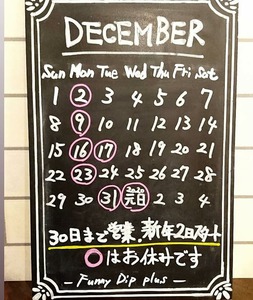 DECEMBER
Sun Mon Tue Wed Thu Fri Sat
1 2 3 4 5 6 7
8 9 10 11 12 13 14
15 16 17 18 19 20 21
22 23 24 25 26 27 28
29 30 31 2020 元日 2 3 4
30日まで営業. 新年2日スタート
○はお休みです
- Funny Dip plus -